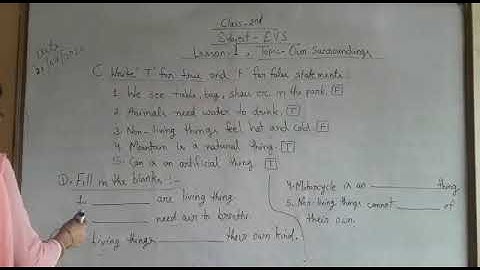 Class-2nd
Subject - E.V.S
Lesson-1, Topic- Our Surroundings
Date
C. Write 'T' for true and F for false statements:
1. We see table, bag, shoes etc. in the park. F
2. Animals need water to drink. T
3. Non-living things feel hot and cold. F
4. Mountain is a natural thing. T
5. Car is an artificial thing. T
D. Fill in the blanks :-
1. ________ are living thing.
________ need air to breathe.
Living things ________ their own kind.
4. Motorcycle is an ________ thing.
5. Non-living things cannot ________ of
their own.